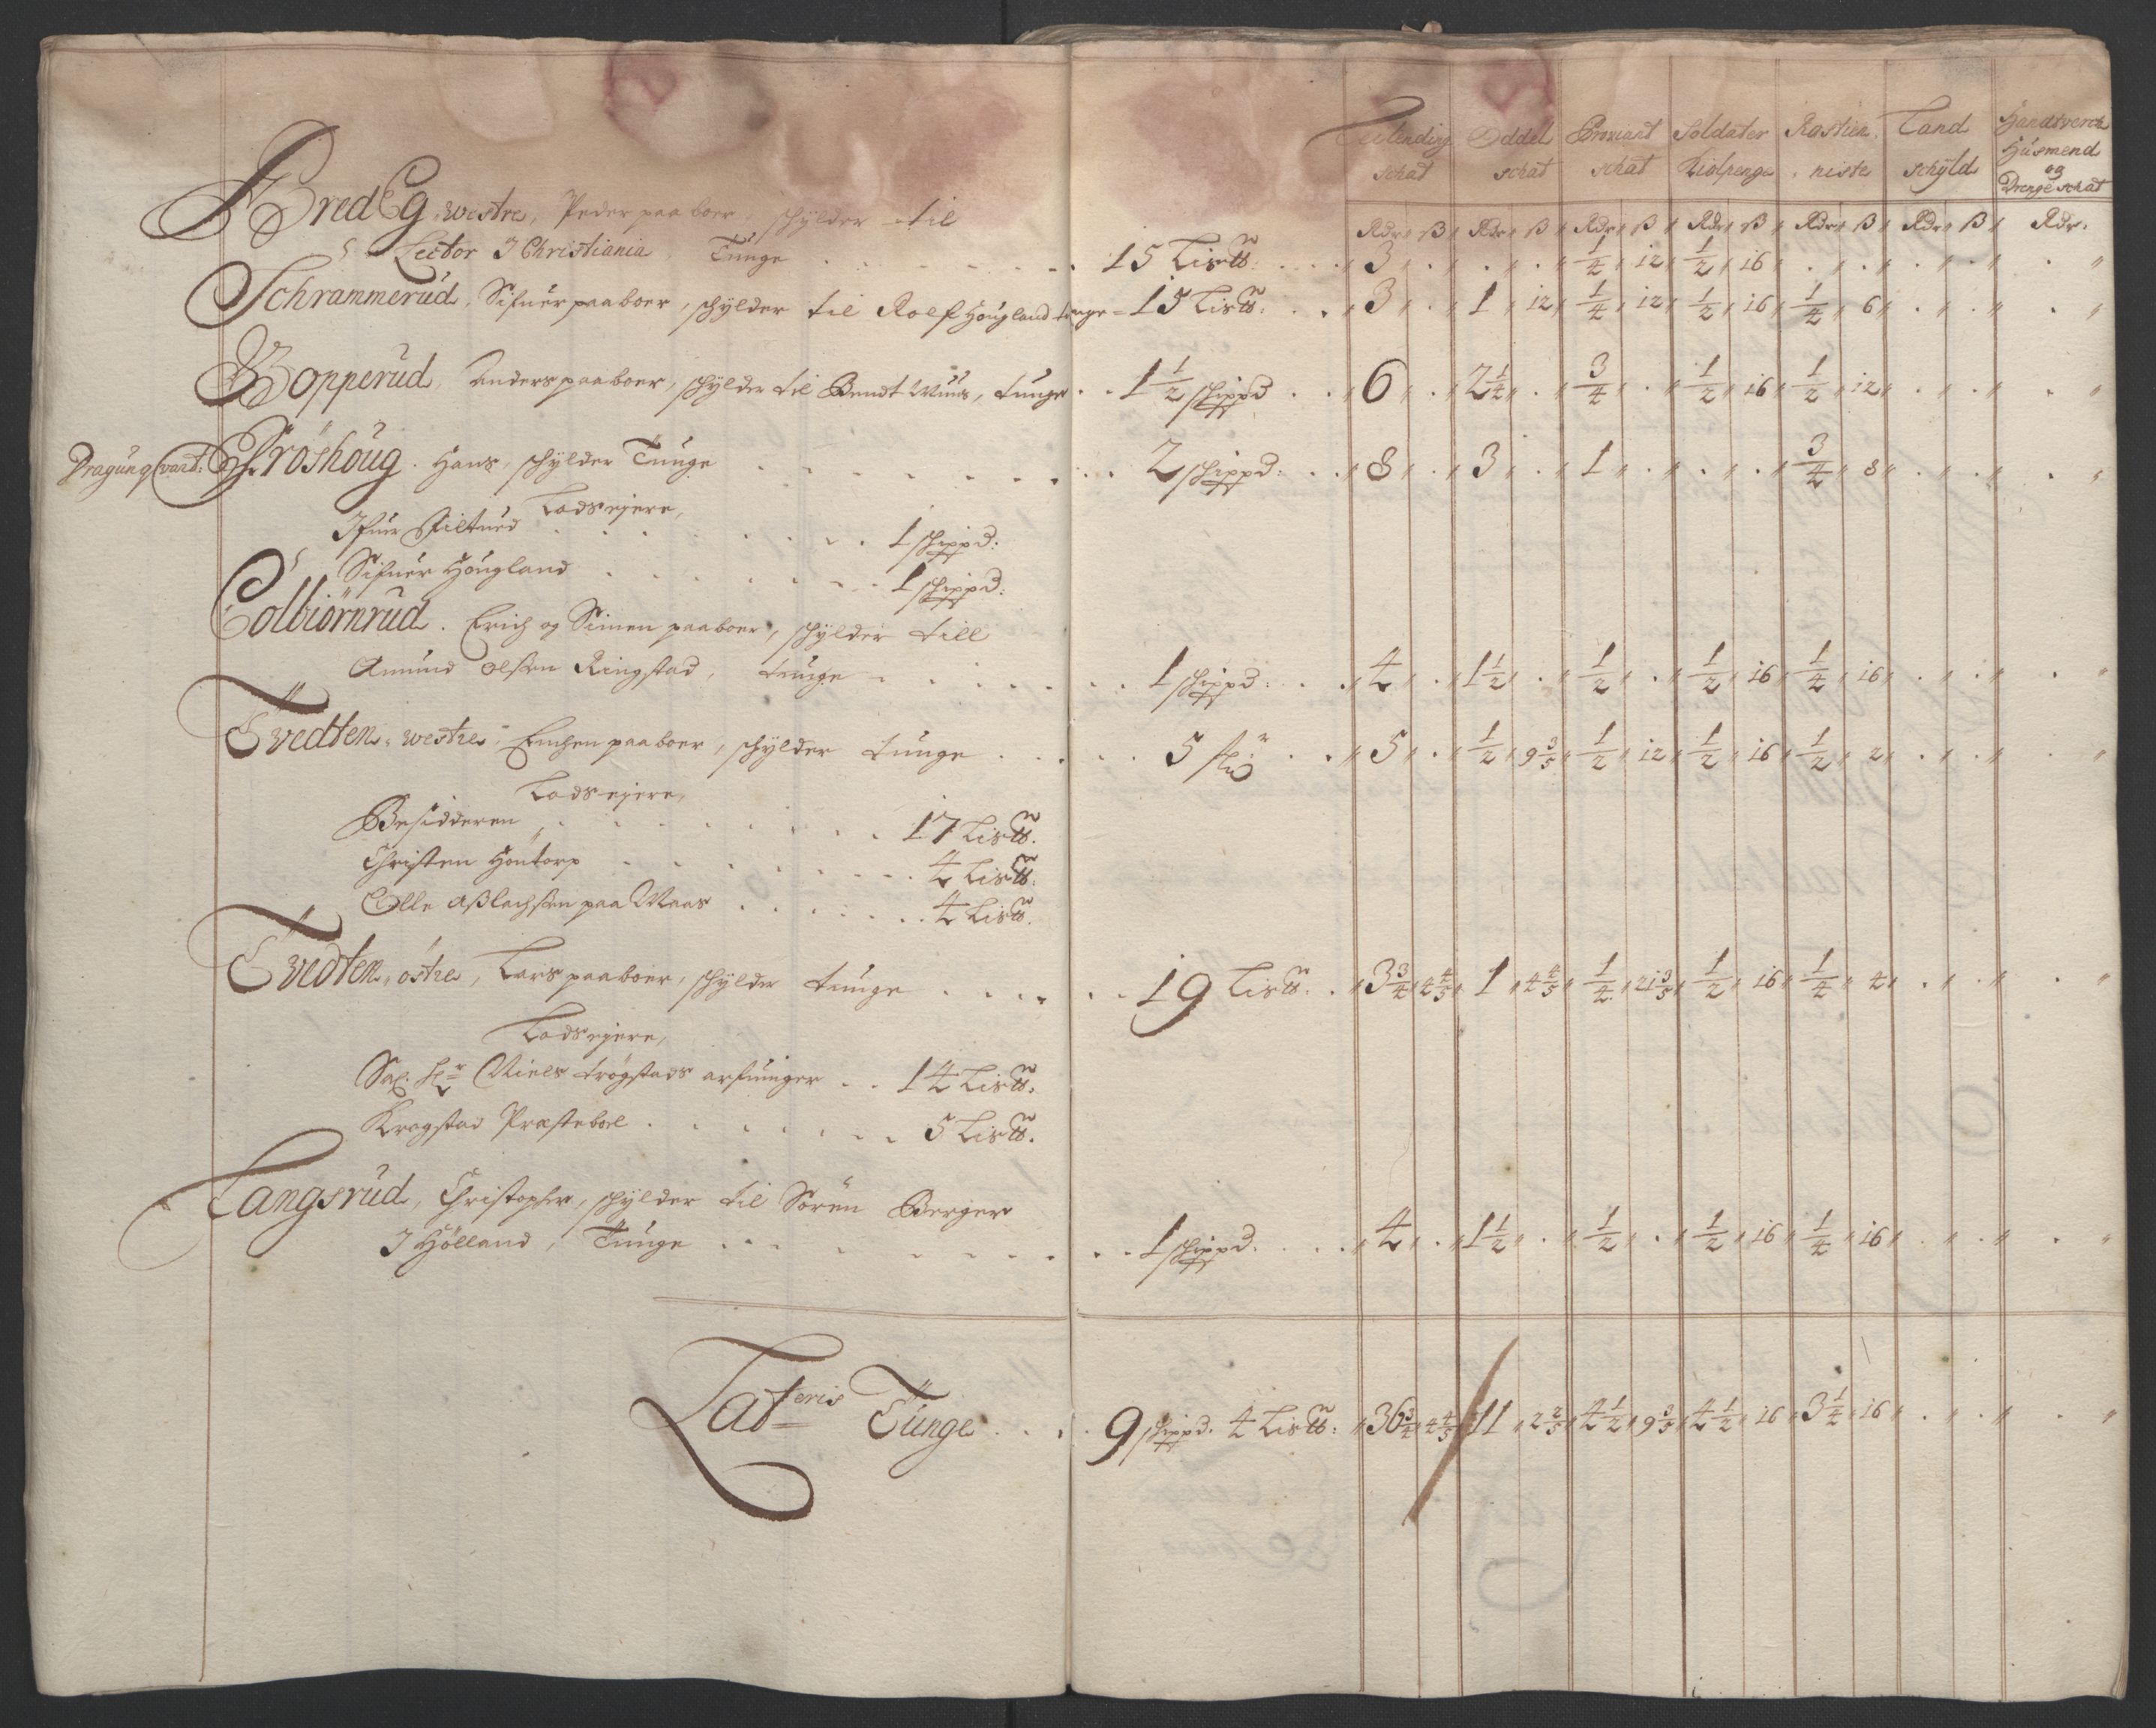 Leilending schat | Oddel schat | Proviant schat | Soldater Kiolpenge | Rostien niste | Land schyld | Handtverck Husmend og Drenge schat
Rdr ß | Rdr ß | Rdr ß | Rdr ß | Rdr ß | Rdr ß | Rdr.
BredEg, westre, Peder paaboer, schylder til
Lector J Christiania. Tunge . . . 15 Lis℔. . . 3 . . . . 1/4 12 1/2 16 . . . . .
Schrammerud, Sifuer paaboer, schylder til Rolf Hougland tunge - 15 Lis℔. . . 3 . 1 12 1/4 12 1/2 16 1/4 6 . . .
Bopperud, Anders paaboer, schylder til Bendt Wiüs, tunge . . 1 1/2 schippd . . 6 . 2 1/4 . 3/4 . 1/2 16 1/2 12 . . .
Dragung qvart: Fröshoug. Hans, schylder Tunge . . . 2 schippd: . . 8 . 3 . 1 . . . 3/4 8 . . .
Lodsejere,
Ifuer . . . 1 schippd:
Sifuer Hougland . . . 1 schippd:
Colbiörnrud. Erich og Simen paaboer, schylder till
Amund Olsen Ringstad, tunge . . . 1 schippd: . . 4 . 1 1/2 . 1/2 . 1/2 16 1/4 16 . . .
Tvedten, westre, Enchen paaboer, schylder tunge . . . 5 . . 5 . 1/2 9 3/5 1/2 12 1/2 16 1/2 2 . .
Lodsejere,
Besidderen . . . 17 Lis℔.
Christen Houtorp . . . 4 Lis℔.
Olle Aßlachsen paa Maas . . . 4 Lis℔.
Tvedten, östre, Lars paaboer, schylder tunge . . . 19 Lis℔. . 3 3/4 4 4/5 1 4 4/5 1/4 21 3/5 1/2 16 1/4 4 . . .
Lodsejere,
Sal. Hr Niels trögstads arfuinger . . 14 Lis℔.
Kragstad Præstebol . . . 5 Lis℔.
Langsrud, Christopher, schylder til Sören Berger
J Hölland, Tunge . . . 1 schippd. . . 4 . 1 1/2 . 1/2 . 1/2 16 1/4 16 . . .
Lateris Tunge . . . 9 schippd. 4 Lis℔: 36 3/4 4 4/5 11 2 2/5 4 1/2 9 3/5 4 1/2 16 3 1/4 16 . . .